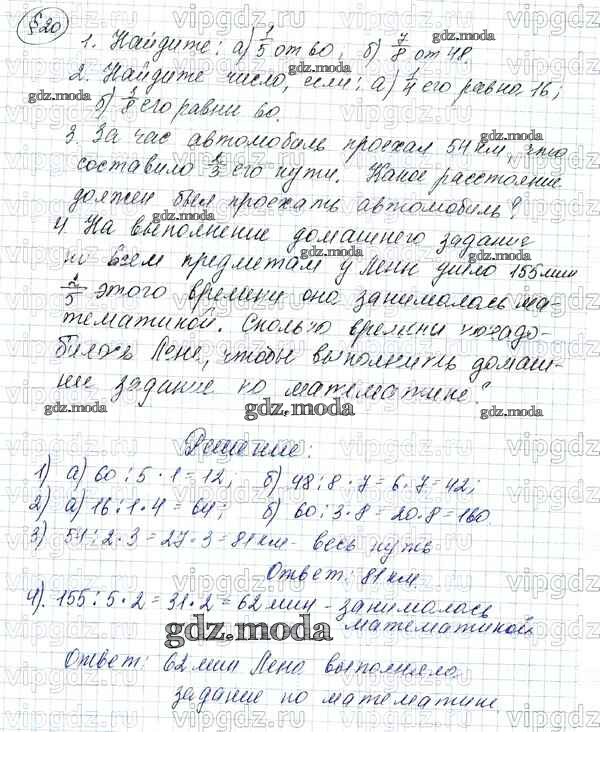 §20
1. Найдите: а) 1/5 от 60, б) 7/8 от 48.
2. Найдите число, если: а) 1/4 его равна 16;
б) 3/8 его равны 60.
3. За час автомобиль проехал 54 км, что
составило 2/3 его пути. Какое расстояние
должен был проехать автомобиль?
4. На выполнение домашнего задание
по всем предметам у Лены ушло 155 мин
2/5 этого времени она занималась ма-
тематикой. Сколько времени понадо-
билось Лене, чтобы выполнить домаш-
нее задание по математике?
Решение:
1) а) 60 : 5 · 1 = 12; б) 48 : 8 · 7 = 6 · 7 = 42;
2) а) 16 : 1 · 4 = 64; б) 60 : 3 · 8 = 20 · 8 = 160.
3) 54 : 2 · 3 = 27 · 3 = 81 км - весь путь
Ответ: 81 км.
4). 155 : 5 · 2 = 31 · 2 = 62 мин - занималась
математикой
Ответ: 62 мин Лена выполняла
задание по математике
gdz.moda
vipgdz.ru